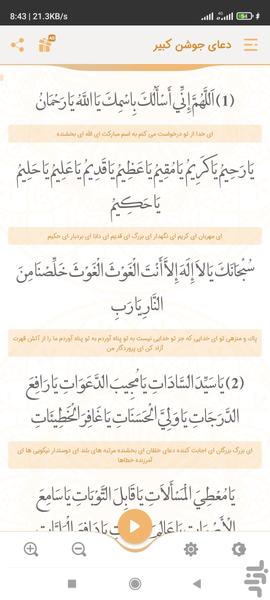 8:43 | 21.3KB/s
دعای جوشن کبیر
(1) اَللَّهُمَّ إِنِّي أَسْأَلُكَ بِاسْمِكَ يَا اللَّهُ يَا رَحْمَانُ
ای خدا از تو درخواست می کنم به اسم مبارکت ای الله ای بخشنده
يَا رَحِيمُ يَا كَرِيمُ يَا مُقِيمُ يَا عَظِيمُ يَا قَدِيمُ يَا عَلِيمُ يَا حَلِيمُ
يَا حَكِيمُ
ای مهربان ای کریم ای نگهدار ای بزرگ ای قدیم ای دانا ای بردبار ای حکیم
سُبْحَانَكَ يَا لاَ إِلَهَ إِلاَّ أَنْتَ الْغَوْثَ الْغَوْثَ خَلِّصْنَا مِنَ
النَّارِ يَا رَبِّ
پاک و منزهی تو ای خدایی که جز تو خدایی نیست به تو پناه آوردم به تو پناه آوردم ما را از آتش قهرت
آزاد کن ای پروردگار من
(2) يَا سَيِّدَ السَّادَاتِ يَا مُجِيبَ الدَّعَوَاتِ يَا رَافِعَ
الدَّرَجَاتِ يَا وَلِيَّ الْحَسَنَاتِ يَا غَافِرَ الْخَطِيئَاتِ
ای بزرگ بزرگان ای اجابت کننده دعای خلقان ای بخشنده مرتبه های بلند ای دوستدار نیکویی ها ای
آمرزنده خطاها
يَا مُعْطِيَ الْمَسْأَلاَتِ يَا قَابِلَ التَّوْبَاتِ يَا سَامِعَ
بازار